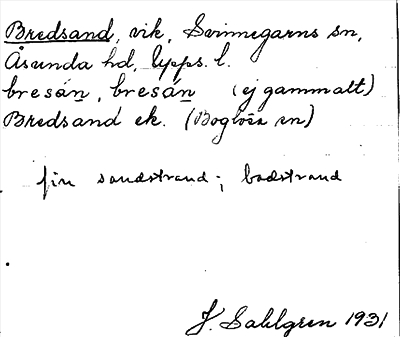 Bredsand, vik, Svinnegarns sn,
Åsunda hd, Upps. l.
bresán, bresán (ej gammalt)
Bredsand ek. (Boglösa sn)
fin sandstrand; badstrand
J. Sahlgren 1931